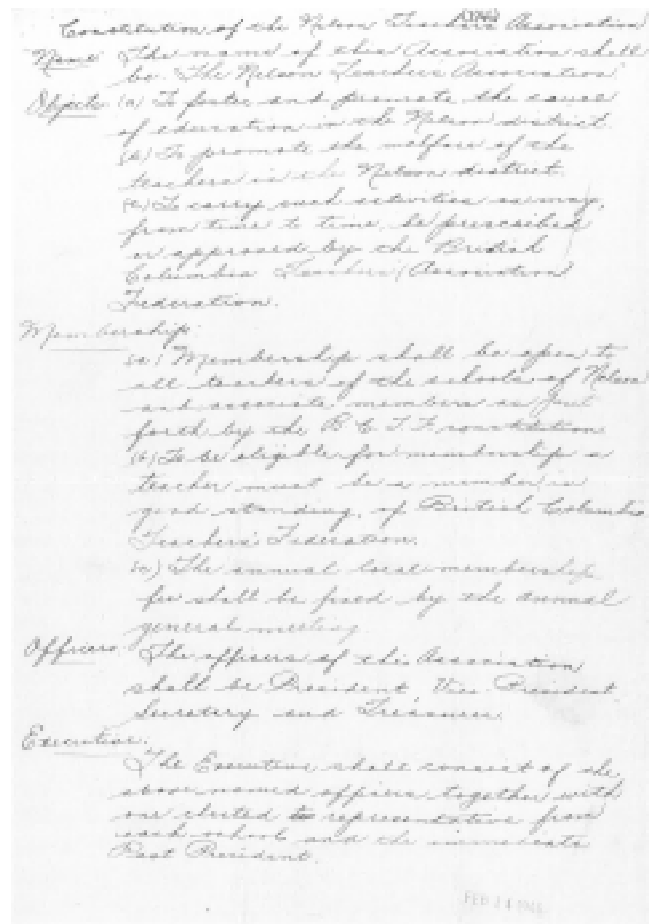 Constitution of the Nelson Teachers Association
Name The name of this Association shall
be. The Nelson Teachers Association
Objects (a) To foster and promote the cause
of education in the Nelson district.
(b) To promote the welfare of the
teachers in the Nelson district.
(c) To carry such activities as may,
from time to time, be prescribed
or approved by the British
Columbia Teachers' Association
Federation.
Membership.
(a) Membership shall be open to
all teachers of the schools of Nelson
and associate members as
forth by the B C T F constitution
(b) To be eligible for membership a
teacher must be a member in
good standing, of British Columbia
Teachers' Federation.
(c) The annual local membership
fee shall be fixed by the annual
general meeting.
Officers The officers of this Association
shall be President, Vice President
Secretary and Treasurer.
Executive.
The Executive shall consist of the
above named officers together with
one elected representative from
each school and the immediate
Past President.
FEB 24